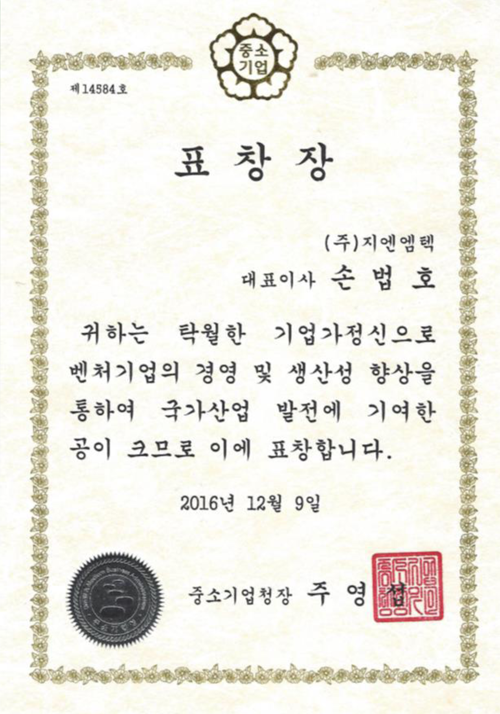 중소
기업
제14584호
표창장
(주)지엔엠텍
대표이사 손법호
귀하는 탁월한 기업가정신으로
벤처기업의 경영 및 생산성 향상을
통하여 국가산업 발전에 기여한
공이 크므로 이에 표창합니다.
2016년 12월 9일
중소기업청장 주영섭